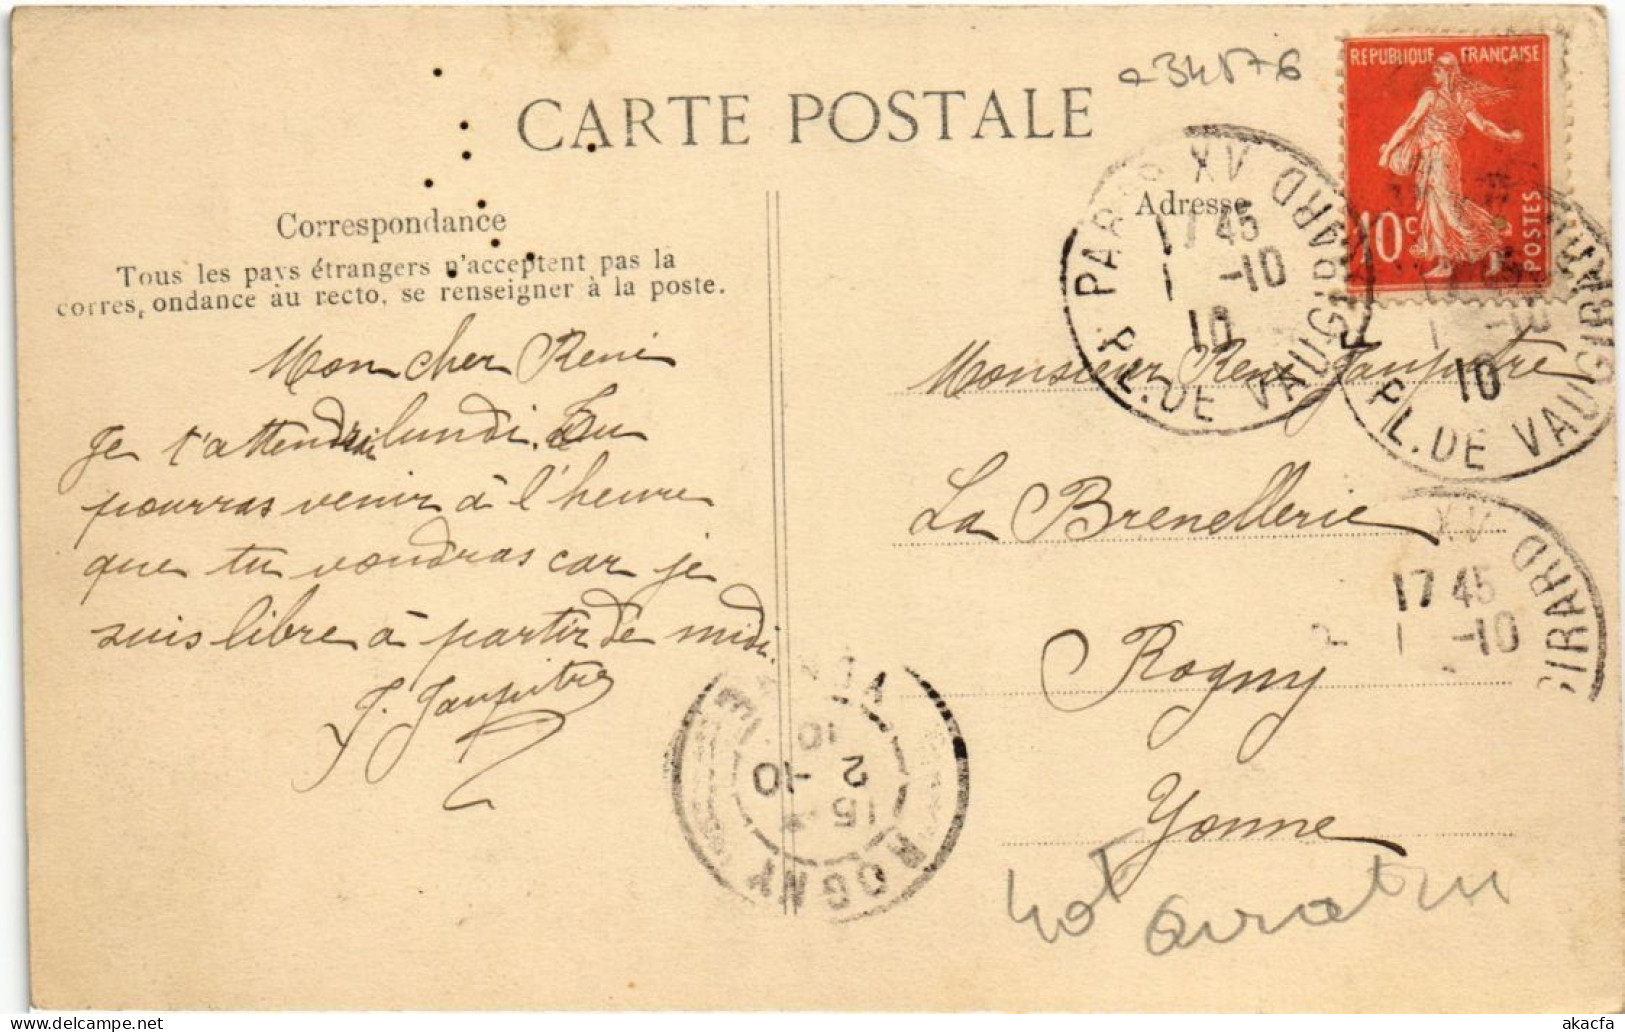 a 34576
CARTE POSTALE
RÉPUBLIQUE FRANÇAISE
10c
POSTES
Correspondance
Tous les pays étrangers n'acceptent pas la
corres, ondance au recto, se renseigner à la poste.
Adresse
PARIS XV
17 45
1 -10
10
PL. DE VAUGIRARD
10
PL. DE VAUGIRARD
XV
17 45
1 -10
GIRARD
Mon cher René
Je t'attendrai lundi. Tu
pourras venir à l'heure
que tu voudras car je
suis libre à partir de midi.
J. Jaupitre
Monsieur René Jaupitre
La Brenellerie
Rogny
Yonne
ROGNY
15
2 -10
10
YONNE
aviation
akacfa